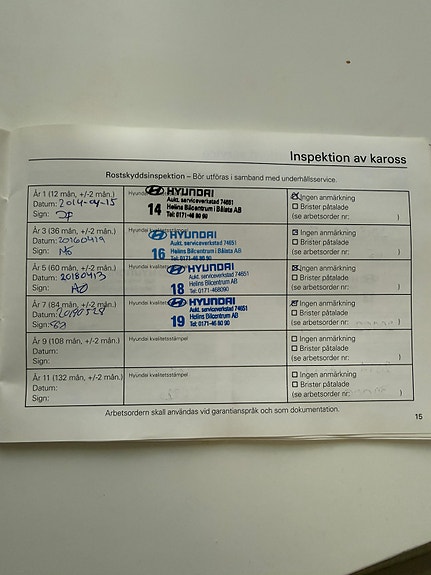 Inspektion av kaross
Rostskyddsinspektion – Bör utföras i samband med underhållsservice.
År 1 (12 mån, +/-2 mån.)
Datum: 2014-04-15
Sign:
HYUNDAI
14 Aukt. serviceverkstad 74651
Helins Bilcentrum i Bålsta AB
Tel: 0171-46 80 90
Ingen anmärkning
Brister påtalade
(se arbetsorder nr: )
År 3 (36 mån, +/-2 mån.)
Datum: 20160419
Sign:
HYUNDAI
16 Aukt. serviceverkstad 74651
Helins Bilcentrum i Bålsta AB
Tel: 0171-46 80 90
Ingen anmärkning
Brister påtalade
(se arbetsorder nr: )
År 5 (60 mån, +/-2 mån.)
Datum: 20180413
Sign:
HYUNDAI
18 Aukt. serviceverkstad 74651
Helins Bilcentrum i Bålsta AB
Tel: 0171-468090
Ingen anmärkning
Brister påtalade
(se arbetsorder nr: )
År 7 (84 mån, +/-2 mån.)
Datum:
Sign:
HYUNDAI
19 Aukt. serviceverkstad 74651
Helins Bilcentrum i Bålsta AB
Tel: 0171-46 80 90
Ingen anmärkning
Brister påtalade
(se arbetsorder nr: )
År 9 (108 mån, +/-2 mån.)
Datum:
Sign:
Hyundai kvalitetsstämpel
Ingen anmärkning
Brister påtalade
(se arbetsorder nr: )
År 11 (132 mån, +/-2 mån.)
Datum:
Sign:
Hyundai kvalitetsstämpel
Ingen anmärkning
Brister påtalade
(se arbetsorder nr: )
Arbetsordern skall användas vid garantianspråk och som dokumentation.
15